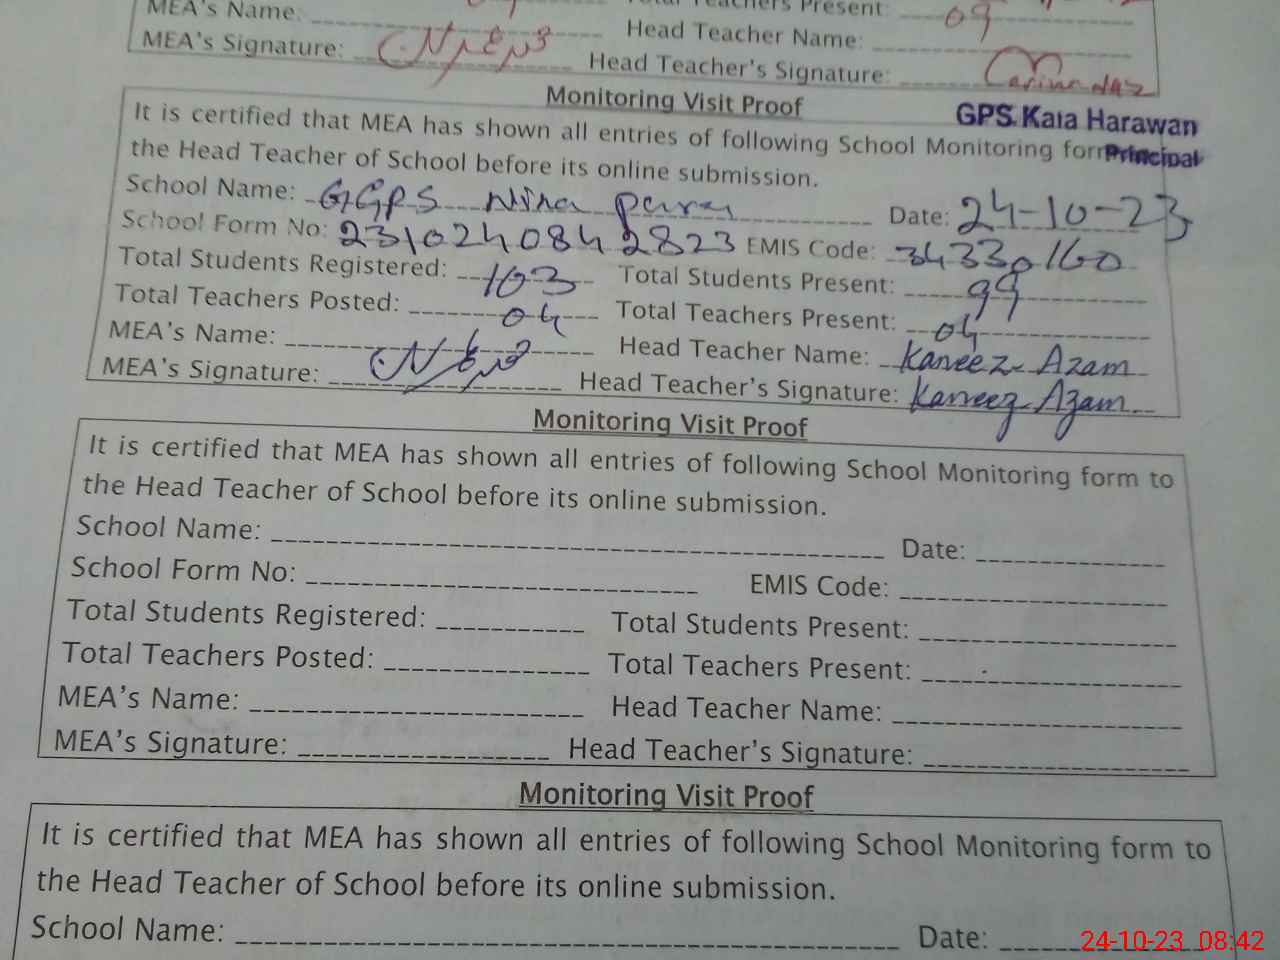 MEA's Name: Total Teachers Present: 09
Head Teacher Name:
MEA's Signature: Head Teacher's Signature:
Monitoring Visit Proof
GPS Kala Harawan
Principal
It is certified that MEA has shown all entries of following School Monitoring form
the Head Teacher of School before its online submission.
School Name: GGPS Date: 24-10-23
School Form No: 231024084 2823 EMIS Code: 34330160
Total Students Registered: 103 Total Students Present: 99
Total Teachers Posted: 04 Total Teachers Present: 04
MEA's Name: Head Teacher Name: Kaneez Azam
MEA's Signature: Head Teacher's Signature: Kaneez Azam
Monitoring Visit Proof
It is certified that MEA has shown all entries of following School Monitoring form to
the Head Teacher of School before its online submission.
School Name: Date:
School Form No: EMIS Code:
Total Students Registered: Total Students Present:
Total Teachers Posted: Total Teachers Present:
MEA's Name: Head Teacher Name:
MEA's Signature: Head Teacher's Signature:
Monitoring Visit Proof
It is certified that MEA has shown all entries of following School Monitoring form to
the Head Teacher of School before its online submission.
School Name: Date:
24-10-23 08:42